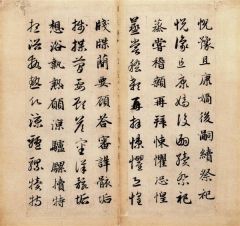 悅豫且康嫡後嗣續祭祀
悅豫且康嫡後嗣續祭祀
蒸嘗稽顙再拜悚懼恐惶
蒸嘗稽顙再拜悚懼恐惶
牋牒簡要顧答審詳骸垢
牋牒簡要顧答審詳骸垢
想浴執熱願涼驢騾犢特
想浴執熱願涼驢騾犢特